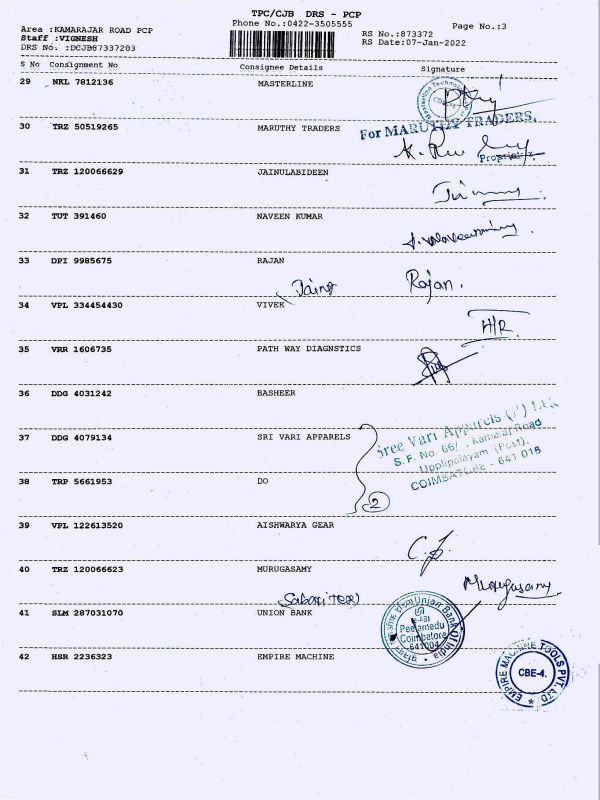 TPC/CJB DRS - PCP
Area :KAMARAJAR ROAD PCP
Phone No.:0422-3505555
Page No.:3
Staff :VIGNESH
RS No.:873372
DRS No. :DCJB87337203
RS Date:07-Jan-2022
S No Consignment No Consignee Details Signature
29 NKL 7812136 MASTERLINE
30 TRZ 50519265 MARUTHY TRADERS
For MARUTHY TRADERS,
Proprietrix
31 TRZ 120066629 JAINULABIDEEN
32 TUT 391460 NAVEEN KUMAR
33 DPI 9985675 RAJAN
Rajan.
34 VPL 334454430 VIVEK
H/R
35 VRR 1606735 PATH WAY DIAGNSTICS
36 DDG 4031242 BASHEER
37 DDG 4079134 SRI VARI APPARELS
Sree Vari Apparels (P) Ltd
S.F. No 66/ . Kamarar Road
Upplipolayam (Post),
COIMBATORE - 641 015
38 TRP 5661953 DO
2
39 VPL 122613520 AISHWARYA GEAR
40 TRZ 120066623 MURUGASAMY
Murugasamy
41 SLM 287031070 UNION BANK
Union Bank Of India
Peelamedu
Coimbatore
641004
42 HSR 2236323 EMPIRE MACHINE
EMPIRE MACHINE TOOLS PVT. LTD.
CBE-4.